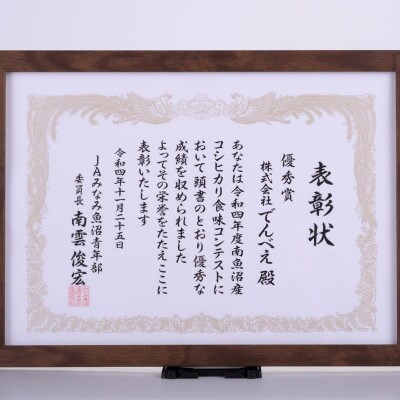 表彰状
優秀賞
株式会社でんべえ殿
あなたは令和四年度南魚沼産
コシヒカリ食味コンテストに
おいて頭書のとおり優秀な
成績を収められました
よってその栄誉をたたえここに
表彰いたします
令和四年十一月二十五日
JAみなみ魚沼青年部
委員長 南雲俊宏